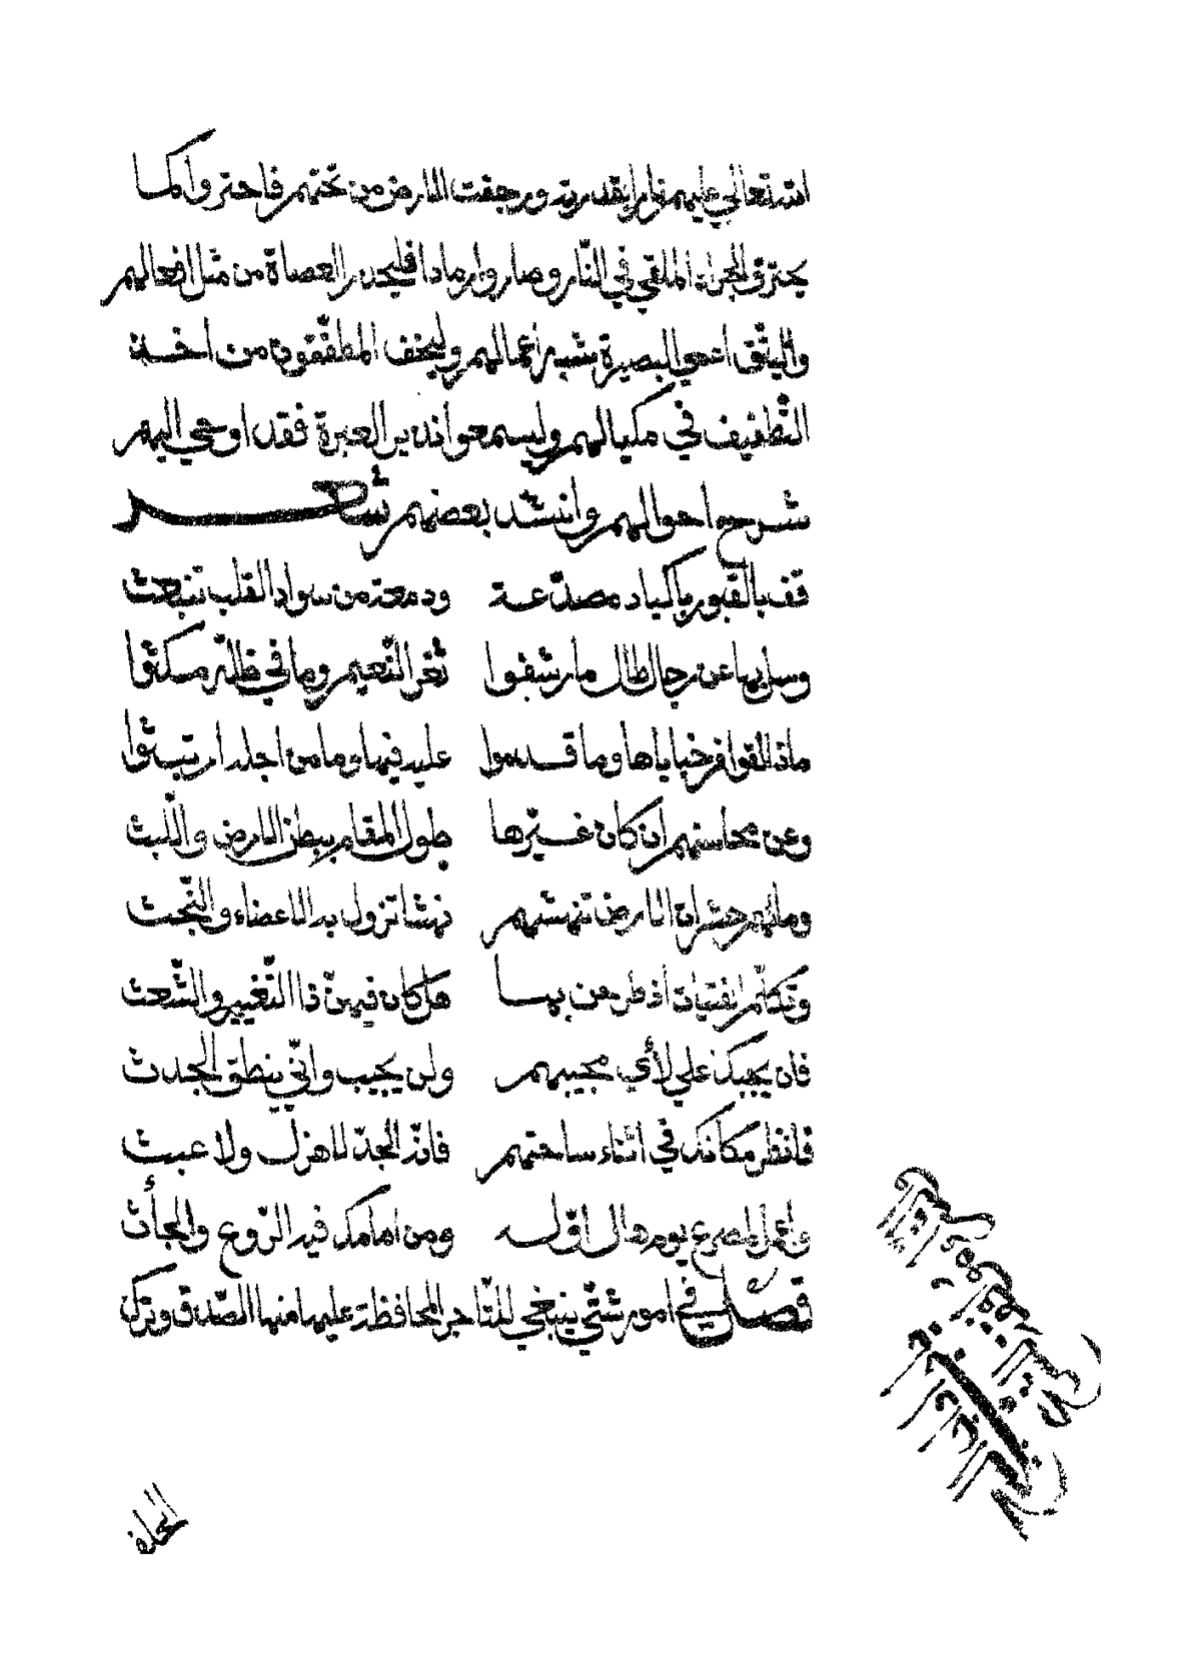 الله تعالى عليهم نارا بقدرته ورجفت الارض من تحتهم فاحترقوا كما
يحترق الجراد الملقي في النّار وصاروا رمادا فليحذر العصاة من مثل افعالهم
واليثق اعمي البصيرة بشبه اعمالهم وليخف المطفّفون من اخذة
التّطفيف في مكيالهم وليسمعوا نذير العبرة فقد اوحي اليهم
شرح احوالهم وانشد بعضهم شعر
قف بالقبور باكباد مصدّعة ودمعة من سواد القلب تنبعث
وسل بها عن رجال طال ما رشفوا ثغر النّعيم وما في ظلّه مكثوا
ماذا لقوا في خباياها وما قدموا عليه فيها وما من اجله ارتبثوا
وعن محاسنهم ان كان غيّرها طول المقام ببطن الارض واللّبث
وما لهم حشرات الارض تنهشهم نهشا تزول به الاعضاء والجثث
وتلكم الفتيات اذ طرحن بها هل كان فيهنّ ذا التّغيير والشّعث
فان يجبك علي لأي مجيبهم ولن يجيب وانّي ينطق الجدث
فانظر مكانك في اثناء ساحتهم فانّه الجدّ لا هزل ولا عبث
واعمل لمصرع يوم هال اوّله ومن امامك فيه الرّوع والجأث
فصل في امور شتّي ينبغي للتّاجر المحافظة عليها منها الصّدق وترك
الحلف